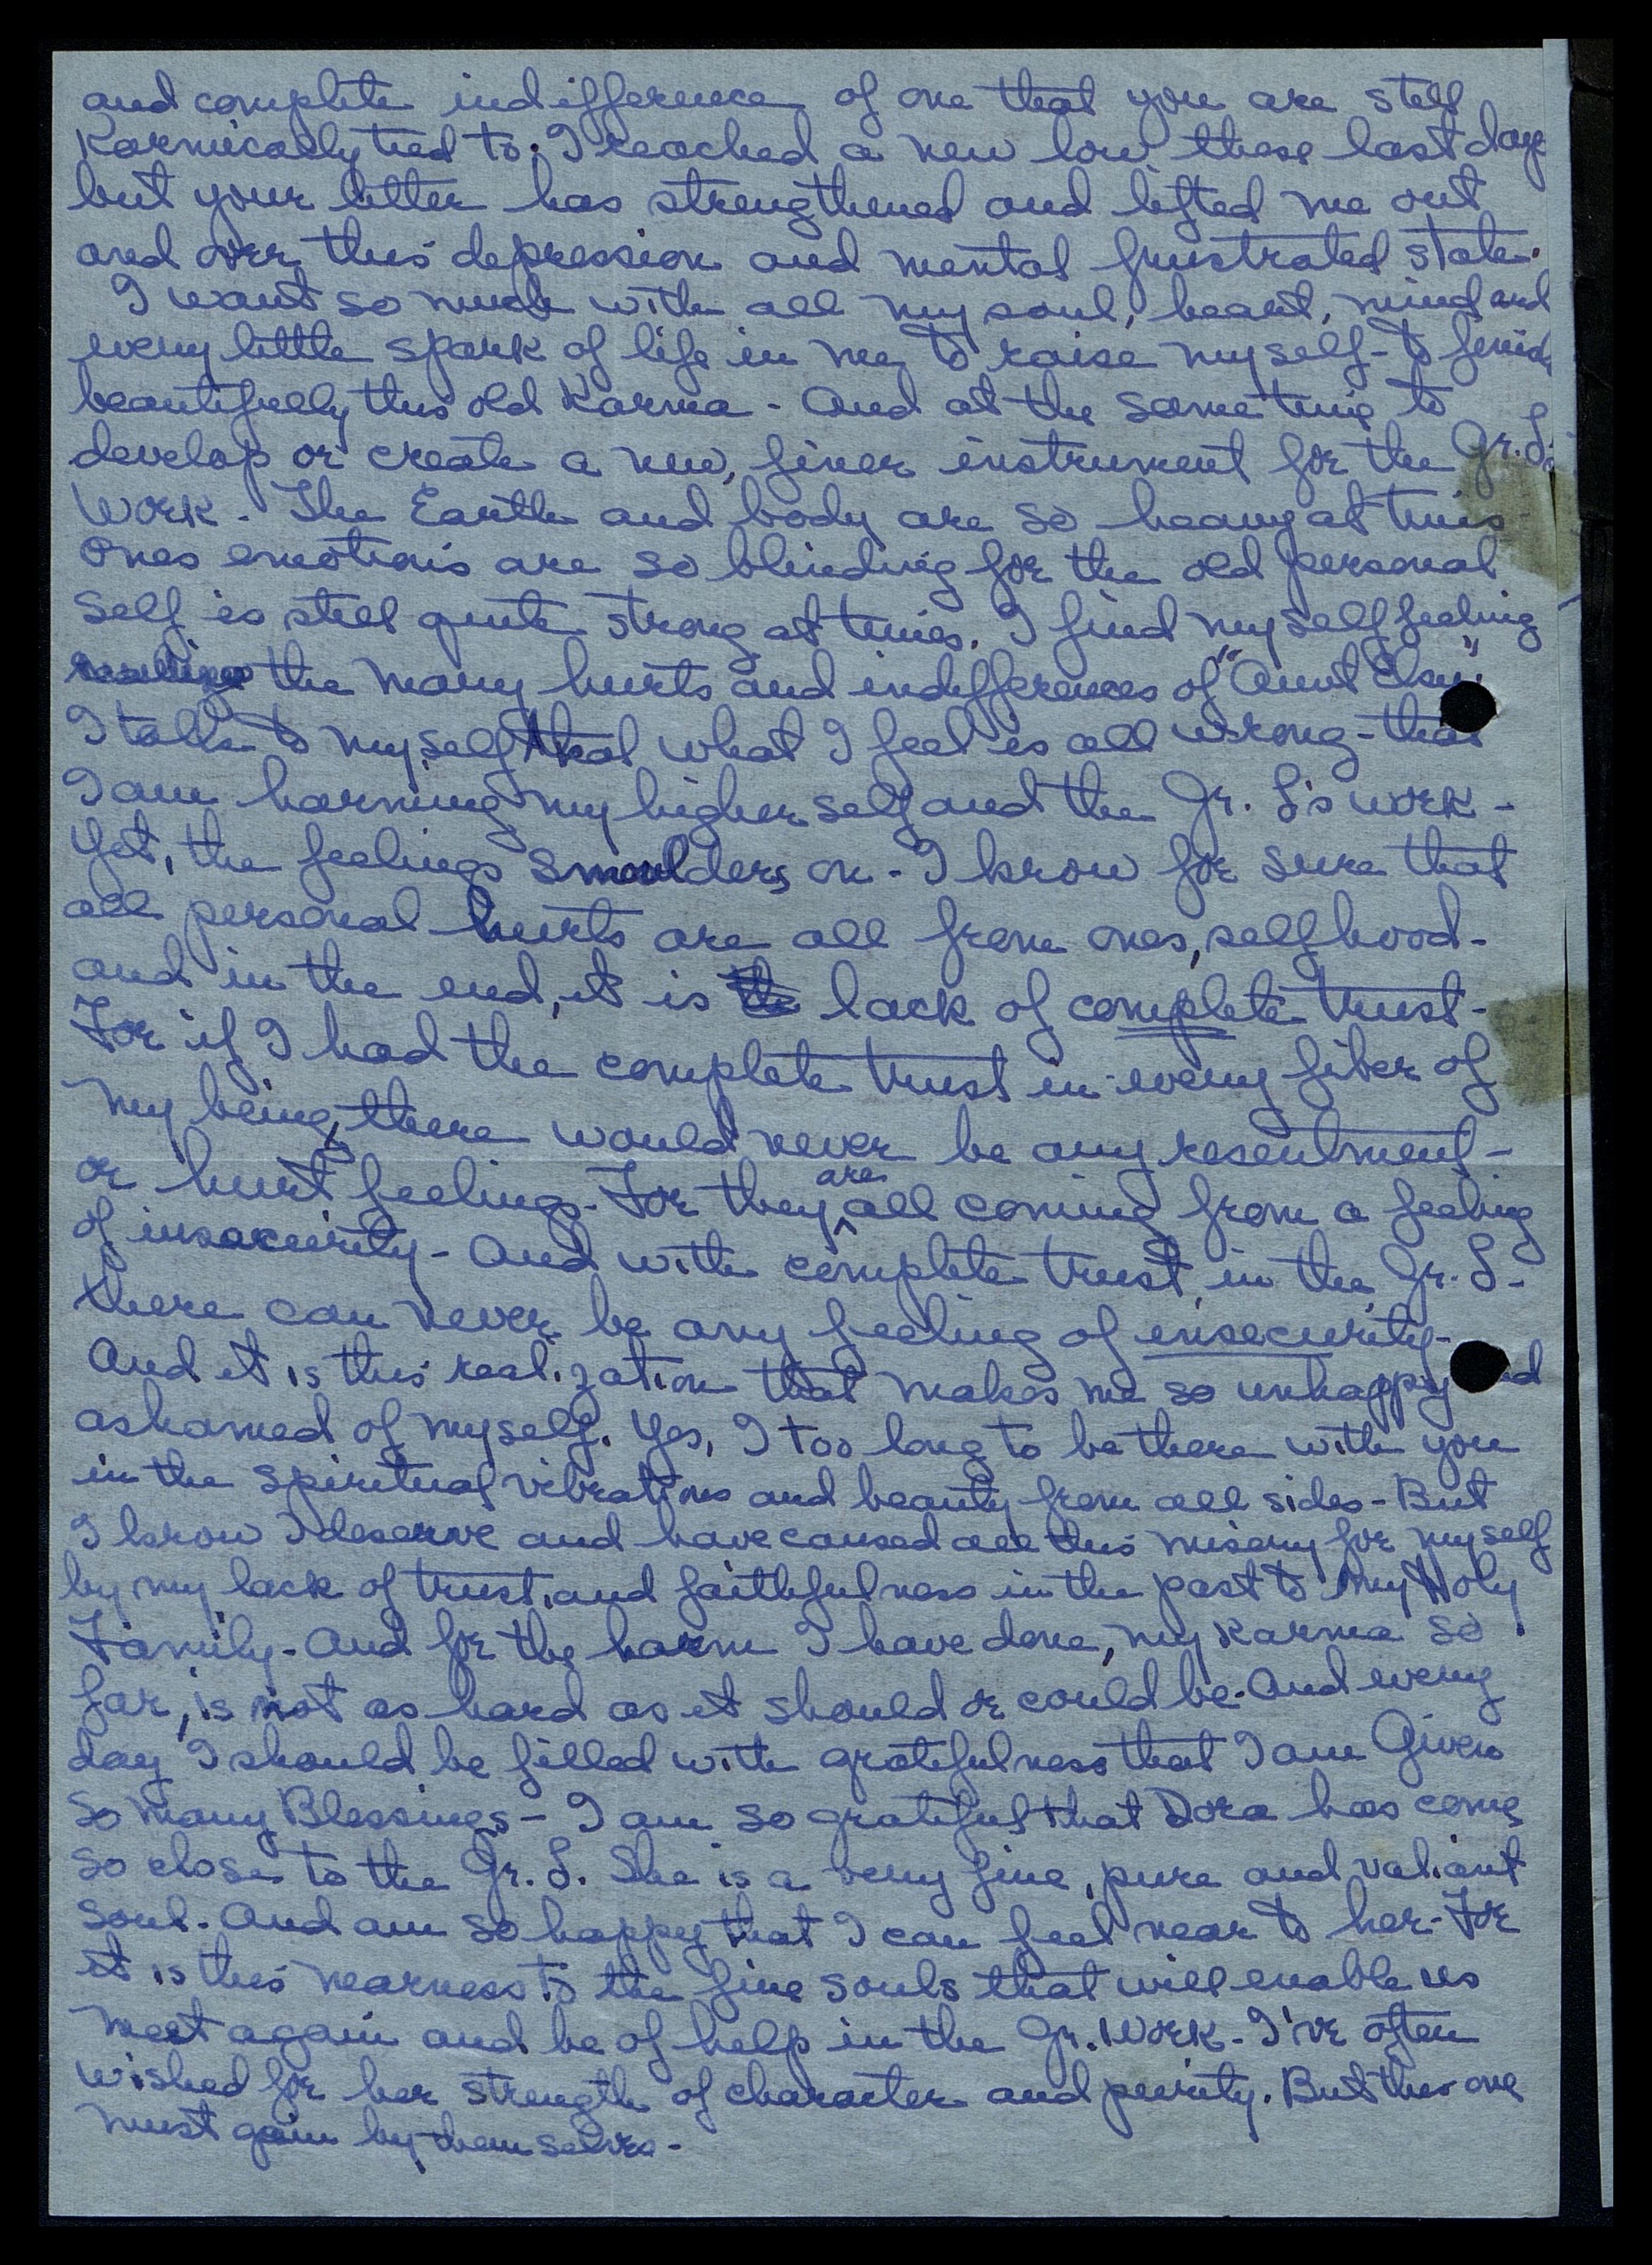 and complete indifference of one that you are still
Karmically tied to. I reached a new low these last days
but your letter has strengthened and lifted me out
and over this depression and mental frustrated state.
I want so much with all my soul, heart, mind and
every little spark of life in me to raise myself - to finish
beautifully this old Karma - And at the same time to
develop or create a new, finer instrument for the Gr. L's
Work - The Earth and body are so heavy at times -
Ones emotions are so blinding for the old personal
Self is still quite strong at times. I find myself feeling
the many hurts and indifferences of "Aunt Elsie"
I talk to myself that what I feel is all wrong - that
I am harming my higher self and the Gr. L's work -
Yet, the feelings smoulders on - I know for sure that
all personal hurts are all from ones, selfhood -
and in the end, it is lack of complete trust -
For if I had the complete trust in every fiber of
my being, there would never be any resentment -
or hurt feelings - For they are all coming from a feeling
of insecurity - And with complete trust in the Gr. L -
there can never be any feeling of insecurity -
And it is this realization that makes me so unhappy and
ashamed of myself. Yes, I too long to be there with you
in the spiritual vibrations and beauty from all sides - But
I know I deserve and have caused all this misery for myself
by my lack of trust, and faithfulness in the past to my Holy
Family - And for the harm I have done, my Karma so
far, is not as hard as it should or could be. And every
day I should be filled with gratefulness that I am Given
so many Blessings - I am so grateful that Dora has come
so close to the Gr. L. She is a very fine, pure and valiant
soul. And am so happy that I can feel near to her - For
it is this nearness to the fine souls that will enable us
meet again and be of help in the Gr. Work - I've often
wished for her strength of character and purity. But this one
must gain by themselves -